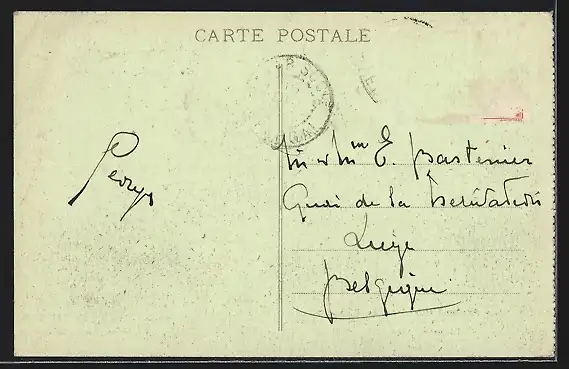 CARTE POSTALE
Georges
M et Mme E. Bastinier
Quai de la
Liège
Belgique